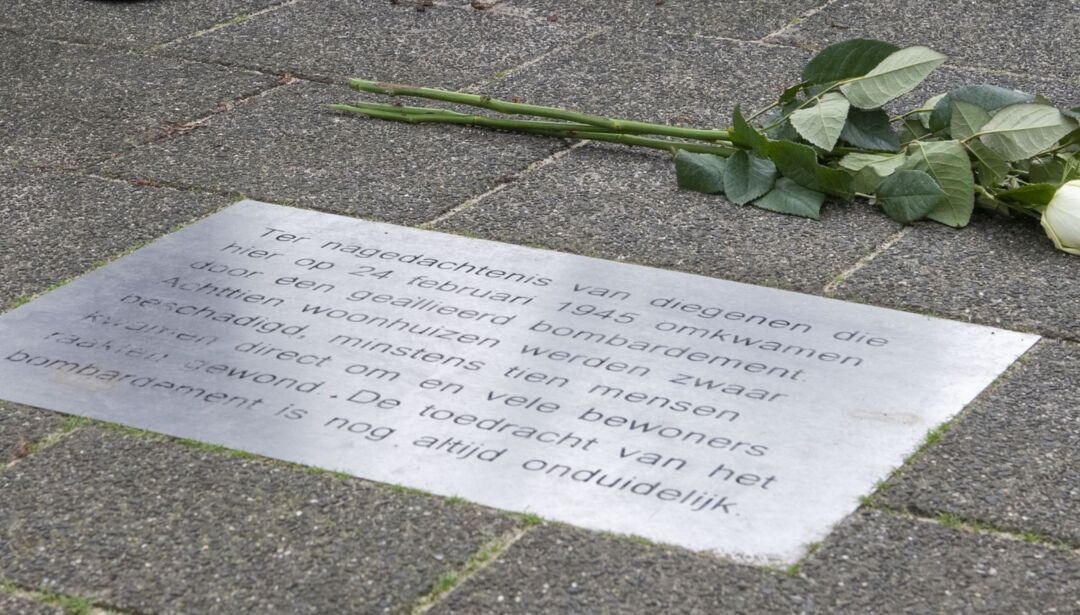 Ter nagedachtenis van diegenen die
hier op 24 februari 1945 omkwamen
door een geallieerd bombardement.
Achttien woonhuizen werden zwaar
beschadigd, minstens tien mensen
kwamen direct om en vele bewoners
raakten gewond. De toedracht van het
bombardement is nog altijd onduidelijk.